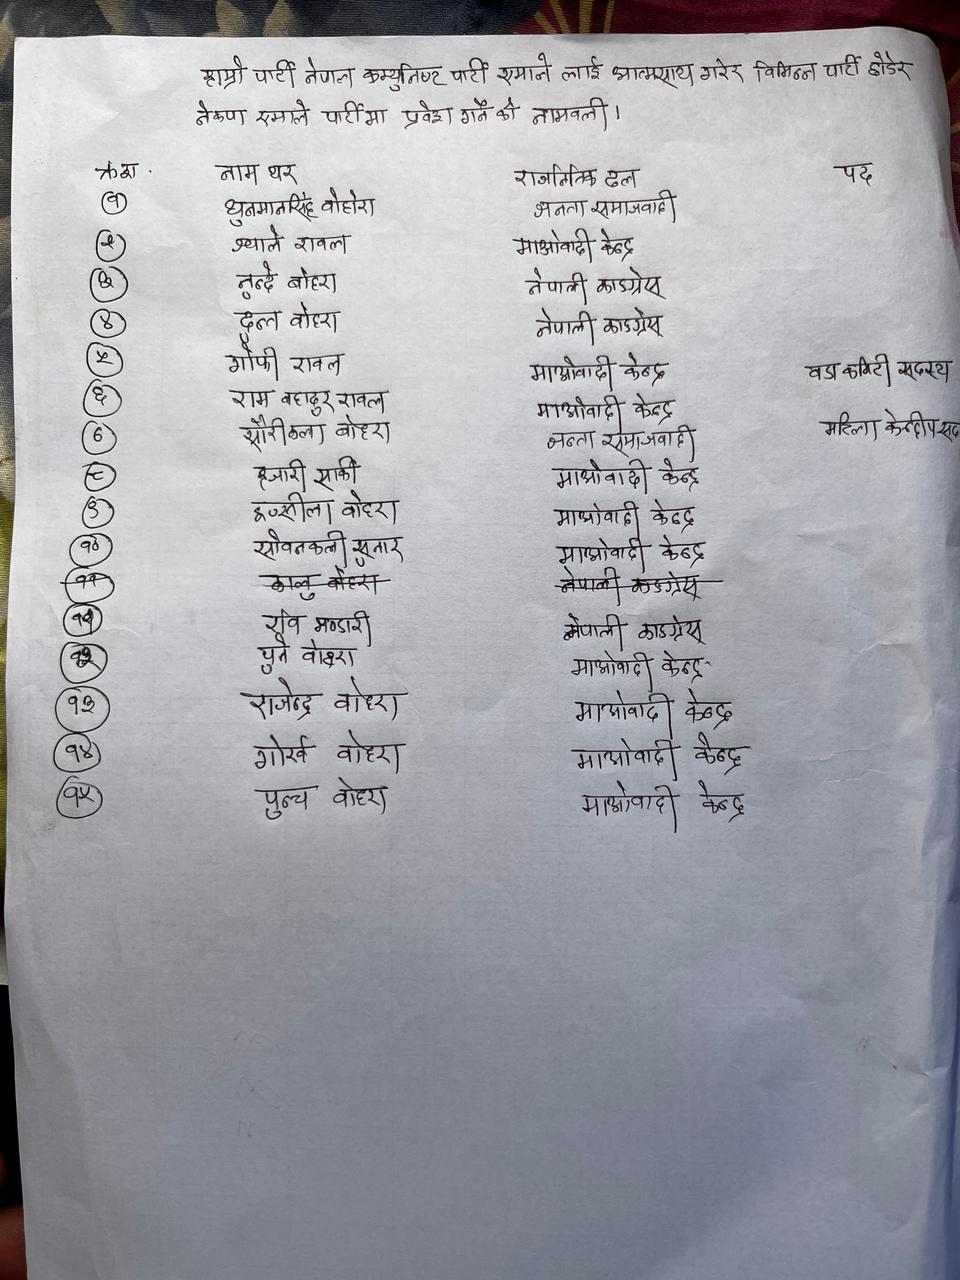 हाम्रो पार्टी नेपाल कम्युनिष्ट पार्टी एमाले लाई आत्मसाथ गरेर विभिन्न पार्टी छोडेर
नेकपा एमाले पार्टीमा प्रवेश गर्ने को नामवली।
क्र.श. नाम थर राजनितिक दल पद
१ धुनमानसिंह वोहोरा जनता समाजवादी
२ श्याले रावल माओवादी केन्द्र
३ नुन्दे बोहरा नेपाली काङग्रेस
४ वोहरा नेपाली काङग्रेस
५ गौफी रावल माओवादी केन्द्र वडा कमिटी सदस्य
६ राम वहादुर रावल माओवादी केन्द्र
७ वोहरा जन्ता समाजवादी महिला केन्द्रीय सद
८ हजारी सार्की माओवादी केन्द्र
९ वोहरा माओवादी केन्द्र
१० सौवनकली सुनार माओवादी केन्द्र
११ कालु वोहरा नेपाली काङग्रेस
रवि भण्डारी नेपाली काङग्रेस
पुने वोहरा माओवादी केन्द्र
१३ राजेन्द्र वोहरा माओवादी केन्द्र
१४ गोर्ख वोहरा माओवादी केन्द्र
१५ पुन्च वोहरा माओवादी केन्द्र